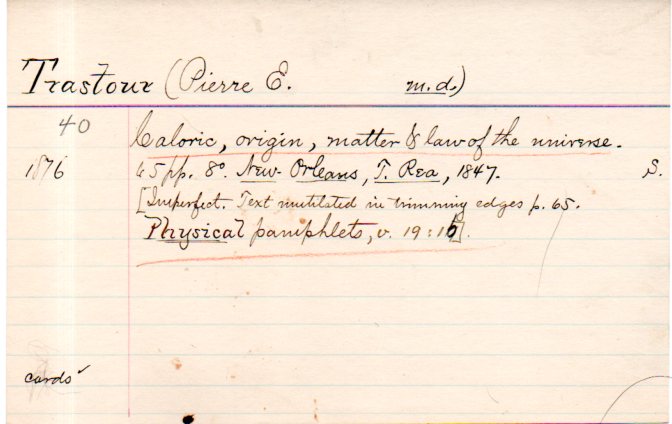 Trastour (Pierre E. m.d.)
40
Caloric, origin, matter & law of the universe.
1876 65 pp. 8º. New Orleans, T. Rea, 1847. S.
[Imperfect. Text mutilated in trimming edges p. 65.
Physical pamphlets, v. 19:16].
cards ✓